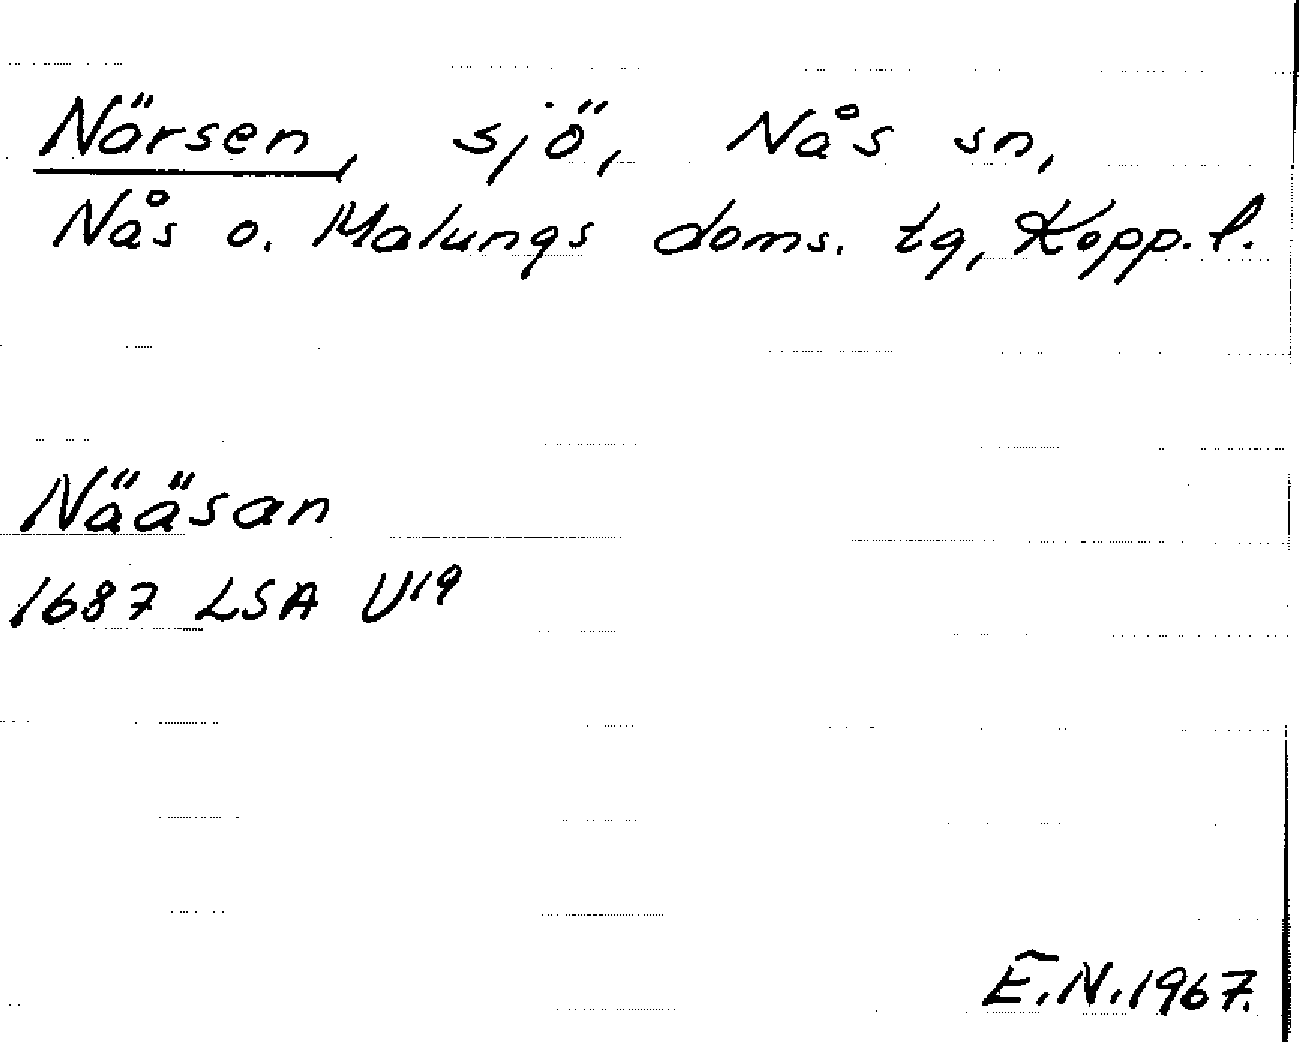 Närsen, sjö, Nås sn,
Nås o. Malungs doms. tg, Kopp. l.
Nääsan
1687 LSA U19
E.N. 1967.